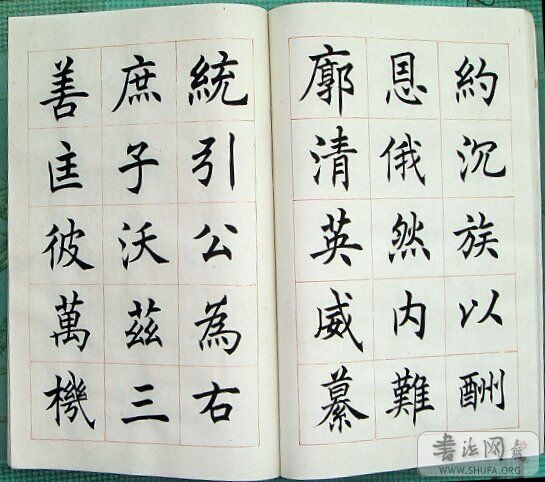 約沉族以酬
恩俄然内難
廓清英威纂
統引公為右
庶子沃茲三
善匡彼萬機
书法网
WWW.SHUFA.ORG